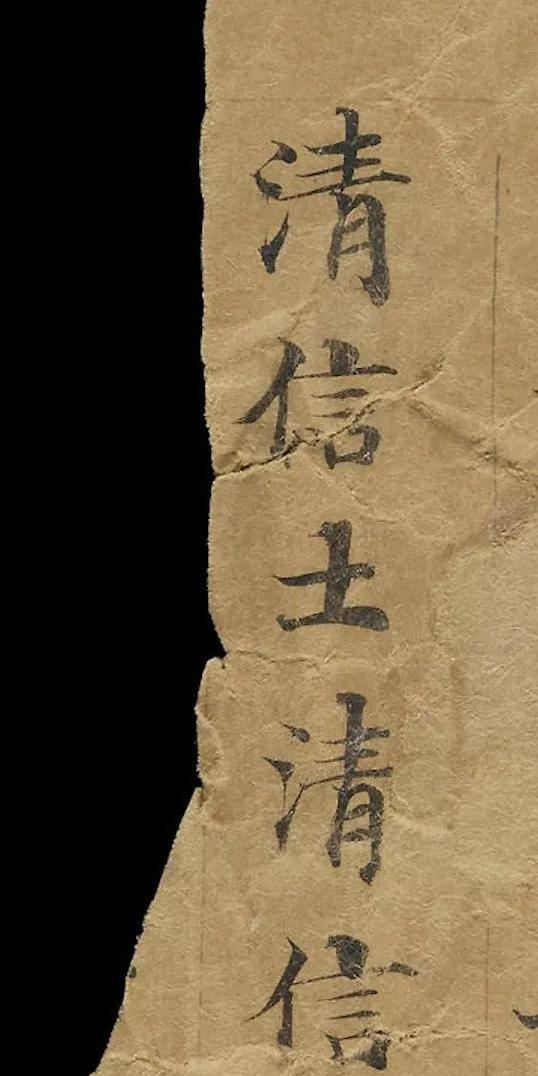 清信士清信